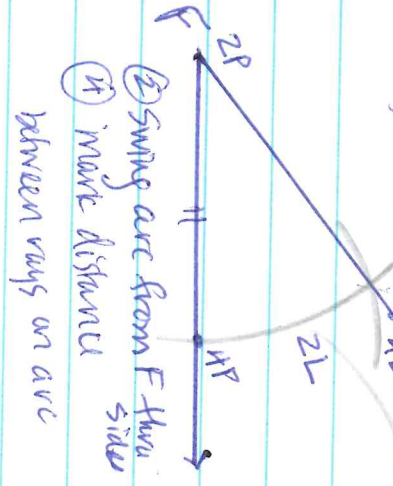 F 2P
2L
4P
② Swing arc from F thru
sides
④ mark distance
between rays on arc